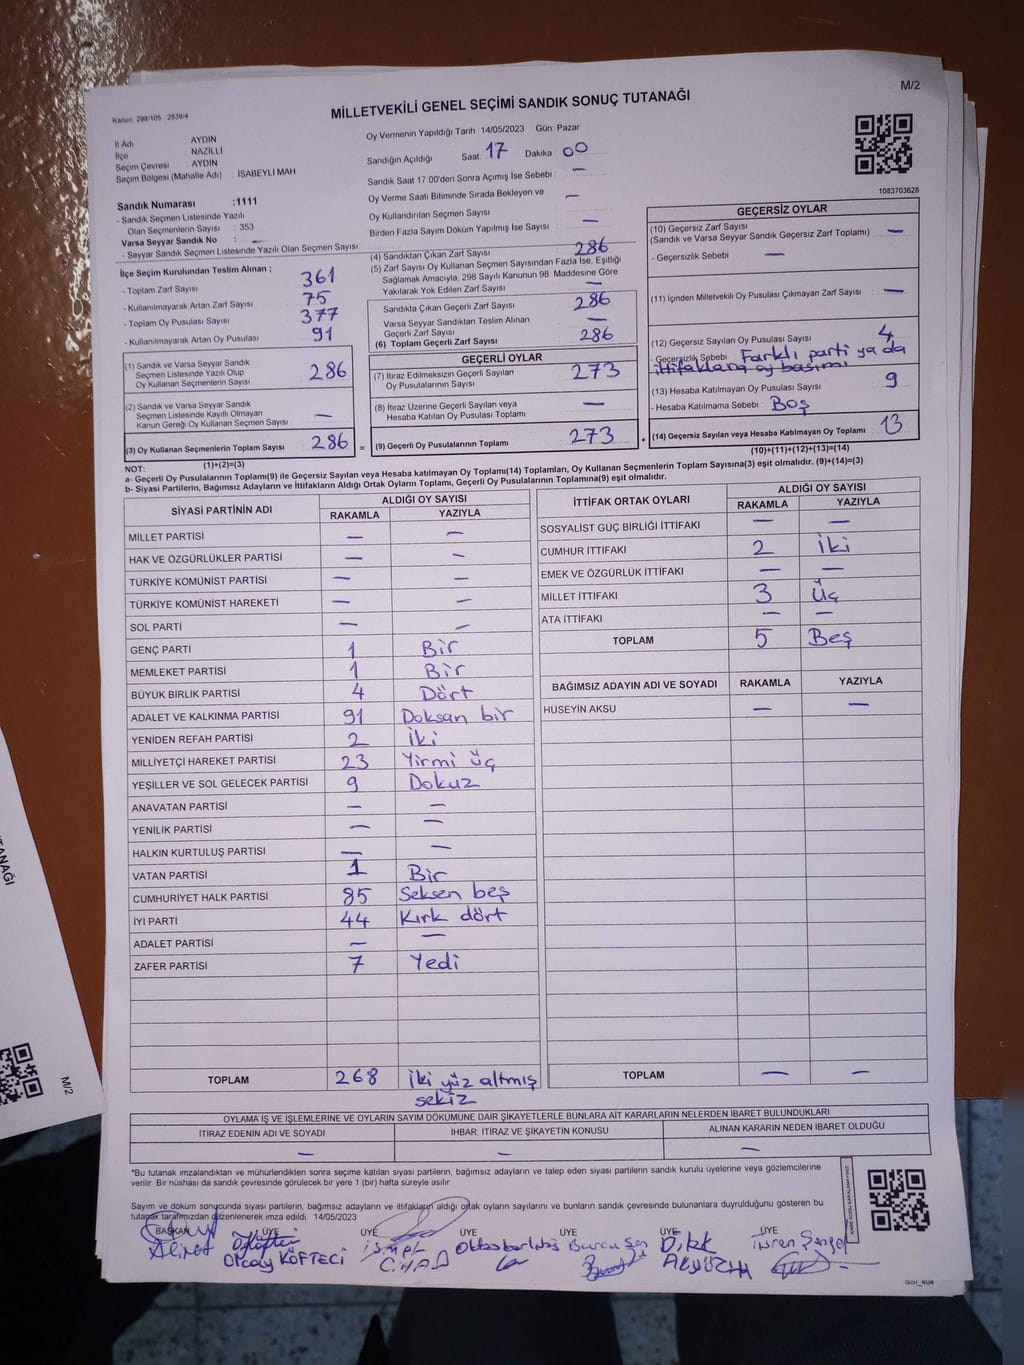 M/2
MİLLETVEKİLİ GENEL SEÇİMİ SANDIK SONUÇ TUTANAĞI
Kanun: 298/105 , 2839/4
İl Adı AYDIN
İlçe NAZİLLİ
Seçim Çevresi AYDIN
Seçim Bölgesi (Mahalle Adı) : İSABEYLİ MAH
Sandık Numarası :1111
- Sandık Seçmen Listesinde Yazılı
Olan Seçmenlerin Sayısı : 353
Varsa Seyyar Sandık No : —
- Seyyar Sandık Seçmen Listesinde Yazılı Olan Seçmen Sayısı:
Oy Vermenin Yapıldığı Tarih 14/05/2023 Gün: Pazar
Sandığın Açıldığı Saat: 17 Dakika 00
Sandık Saat 17.00'den Sonra Açılmış İse Sebebi : —
Oy Verme Saati Bitiminde Sırada Bekleyen ve —
Oy Kullandırılan Seçmen Sayısı
Birden Fazla Sayım Döküm Yapılmış İse Sayısı : —
1083703628
İlçe Seçim Kurulundan Teslim Alınan ;
- Toplam Zarf Sayısı 361
- Kullanılmayarak Artan Zarf Sayısı 75
- Toplam Oy Pusulası Sayısı 377
- Kullanılmayarak Artan Oy Pusulası 91
(1) Sandık ve Varsa Seyyar Sandık
Seçmen Listesinde Yazılı Olup
Oy Kullanan Seçmenlerin Sayısı 286
(2) Sandık ve Varsa Seyyar Sandık
Listesinde Kayıtlı Olmayan
Kanun Gereği Oy Kullanan Seçmen Sayısı —
(3) Oy Kullanan Seçmenlerin Toplam Sayısı 286 =
(1)+(2)=(3)
(4) Sandıktan Çıkan Zarf Sayısı 286
(5) Zarf Sayısı Oy Kullanan Seçmen Sayısından Fazla İse, Eşitliği
Sağlamak Amacıyla, 298 Sayılı Kanunun 98. Maddesine Göre
Yakılarak Yok Edilen Zarf Sayısı —
Sandıkta Çıkan Geçerli Zarf Sayısı 286
Varsa Seyyar Sandıktan Teslim Alınan
Geçerli Zarf Sayısı —
(6) Toplam Geçerli Zarf Sayısı 286
GEÇERLİ OYLAR
(7) İtiraz Edilmeksizin Geçerli Sayılan
Oy Pusulalarının Sayısı 273
(8) İtiraz Üzerine Geçerli Sayılan veya
Hesaba Katılan Oy Pusulası Toplamı —
(9) Geçerli Oy Pusulalarının Toplamı 273 +
GEÇERSİZ OYLAR
(10) Geçersiz Zarf Sayısı
(Sandık ve Varsa Seyyar Sandık Geçersiz Zarf Toplamı) —
- Geçersizlik Sebebi : —
(11) İçinden Milletvekili Oy Pusulası Çıkmayan Zarf Sayısı —
(12) Geçersiz Sayılan Oy Pusulası Sayısı 4
- Geçersizlik Sebebi : Farklı parti ya da
ittifaklara oy basımı
(13) Hesaba Katılmayan Oy Pusulası Sayısı 9
- Hesaba Katılmama Sebebi : Boş
(14) Geçersiz Sayılan veya Hesaba Katılmayan Oy Toplamı 13
(10)+(11)+(12)+(13)=(14)
NOT:
a- Geçerli Oy Pusulalarının Toplamı(9) ile Geçersiz Sayılan veya Hesaba katılmayan Oy Toplamı(14) Toplamları, Oy Kullanan Seçmenlerin Toplam Sayısına(3) eşit olmalıdır. (9)+(14)=(3)
b- Siyasi Partilerin, Bağımsız Adayların ve İttifakların Aldığı Ortak Oyların Toplamı, Geçerli Oy Pusulalarının Toplamına(9) eşit olmalıdır.
SİYASİ PARTİNİN ADI ALDIĞI OY SAYISI
RAKAMLA YAZIYLA
MİLLET PARTİSİ — —
HAK VE ÖZGÜRLÜKLER PARTİSİ — —
TÜRKİYE KOMÜNİST PARTİSİ — —
TÜRKİYE KOMÜNİST HAREKETİ — —
SOL PARTİ — —
GENÇ PARTİ 1 Bir
MEMLEKET PARTİSİ 1 Bir
BÜYÜK BİRLİK PARTİSİ 4 Dört
ADALET VE KALKINMA PARTİSİ 91 Doksan bir
YENİDEN REFAH PARTİSİ 2 İki
MİLLİYETÇİ HAREKET PARTİSİ 23 Yirmi üç
YEŞİLLER VE SOL GELECEK PARTİSİ 9 Dokuz
ANAVATAN PARTİSİ — —
YENİLİK PARTİSİ — —
HALKIN KURTULUŞ PARTİSİ — —
VATAN PARTİSİ 1 Bir
CUMHURİYET HALK PARTİSİ 85 Seksen beş
İYİ PARTİ 44 Kırk dört
ADALET PARTİSİ — —
ZAFER PARTİSİ 7 Yedi
TOPLAM 268 İki yüz altmış
sekiz
İTTİFAK ORTAK OYLARI ALDIĞI OY SAYISI
RAKAMLA YAZIYLA
SOSYALİST GÜÇ BİRLİĞİ İTTİFAKI — —
CUMHUR İTTİFAKI 2 İki
EMEK VE ÖZGÜRLÜK İTTİFAKI — —
MİLLET İTTİFAKI 3 Üç
ATA İTTİFAKI — —
TOPLAM 5 Beş
BAĞIMSIZ ADAYIN ADI VE SOYADI RAKAMLA YAZIYLA
HÜSEYİN AKSU — —
TOPLAM — —
OYLAMA İŞ VE İŞLEMLERİNE VE OYLARIN SAYIM DÖKÜMÜNE DAİR ŞİKAYETLERLE BUNLARA AİT KARARLARIN NELERDEN İBARET BULUNDUKLARI
İTİRAZ EDENİN ADI VE SOYADI İHBAR, İTİRAZ VE ŞİKAYETİN KONUSU ALINAN KARARIN NEDEN İBARET OLDUĞU
— — —
*Bu tutanak imzalandıktan ve mühürlendikten sonra seçime katılan siyasi partilerin, bağımsız adayların ve talep eden siyasi partilerin sandık kurulu üyelerine veya gözlemcilerine
verilir. Bir nüshası da sandık çevresinde görülecek bir yere 1 (bir) hafta süreyle asılır.
Sayım ve döküm sonucunda siyasi partilerin, bağımsız adayların ve ittifakların aldığı ortak oyların sayısını ve bunların sandık çevresinde bulunanlara duyrulduğunu gösteren bu
tutanak tarafımızdan düzenlenerek imza edildi. 14/05/2023
BAŞKAN ÜYE ÜYE ÜYE ÜYE ÜYE
Olcay KÖFTECİ
Burcu Şen
Dilek
UTANAĞI
M/2